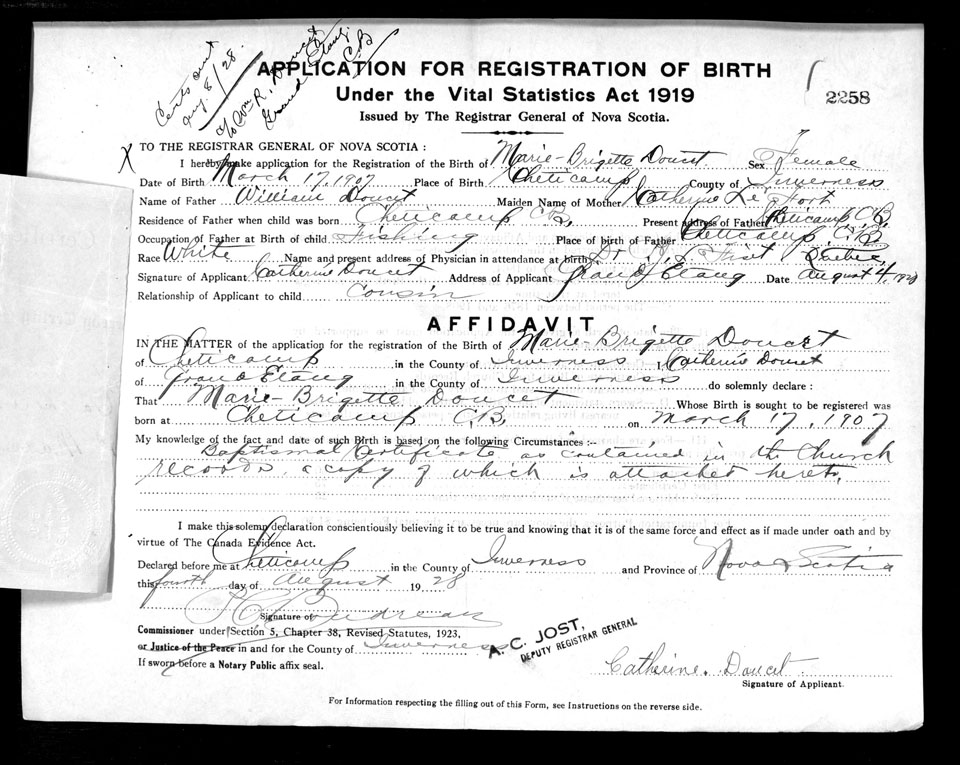 Certs sent
Aug. 8/28.
c/o Wm R. Doucet
Grand Etang
C.B
APPLICATION FOR REGISTRATION OF BIRTH
2258
Under the Vital Statistics Act 1919
Issued by The Registrar General of Nova Scotia.
X TO THE REGISTRAR GENERAL OF NOVA SCOTIA :
I hereby make application for the Registration of the Birth of Marie-Brigette Doucet Sex Female
Date of Birth March 17, 1907 Place of Birth Cheticamp County of Inverness
Name of Father William Doucet Maiden Name of Mother Catherine Le Fort
Residence of Father when child was born Cheticamp C.B, Present address of Father Cheticamp C.B.
Occupation of Father at Birth of child Fishing Place of birth of Father Cheticamp, C.B.
Race White Name and present address of Physician in attendance at birth Dr Quebec
Signature of Applicant Catherine Doucet Address of Applicant Grand Etang Date August 4, 1928
Relationship of Applicant to child Cousin
AFFIDAVIT
IN THE MATTER of the application for the registration of the Birth of Marie-Brigette Doucet
of Cheticamp in the County of Inverness I, Catherine Doucet
of Grand Etang in the County of Inverness do solemnly declare :
That Marie-Brigette Doucet Whose Birth is sought to be registered was
born at Cheticamp C.B, on March 17, 1907
My knowledge of the fact and date of such Birth is based on the following Circumstances :-
Baptismal Certificate as contained in the Church
records, a copy of which is attached hereto.
I make this solemn declaration conscientiously believing it to be true and knowing that it is of the same force and effect as if made under oath and by
virtue of The Canada Evidence Act.
Declared before me at Cheticamp in the County of Inverness and Province of Nova Scotia
this fourth day of August 1928
Signature of
Commissioner under Section 5, Chapter 38, Revised Statutes, 1923,
or Justice of the Peace in and for the County of Inverness
If sworn before a Notary Public affix seal.
A. C. JOST,
DEPUTY REGISTRAR GENERAL
Catherine. Doucet
Signature of Applicant.
For Information respecting the filling out of this Form, see Instructions on the reverse side.